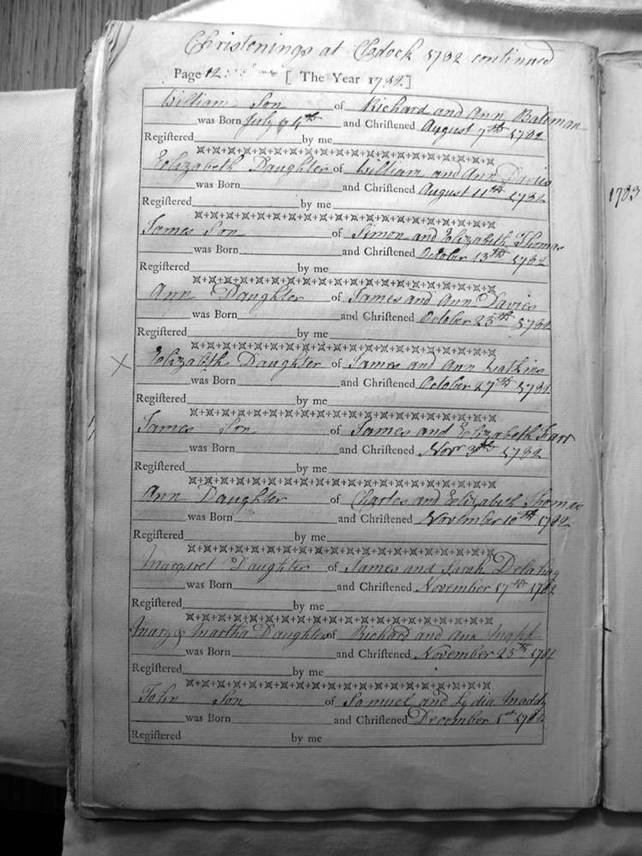 Christenings at Clodock 1782 continued
Page 12: [ The Year 1782]
William Son of Richard and Ann Bateman
was Born July and Chriſtened August 7th 1782
Regiſtered by me
Elizabeth Daughter of William and Ann Davies
was Born and Chriſtened August 11th 1782
Regiſtered by me
James Son of Simon and Elizabeth Thomas
was Born and Chriſtened October 13th 1782
Regiſtered by me
Ann Daughter of James and Ann Davies
was Born and Chriſtened October 23th 1782
Regiſtered by me
X Elizabeth Daughter of James and Ann Watkins
was Born and Chriſtened October 27th 1782
Regiſtered by me
James Son of James and Elizabeth Farr
was Born and Chriſtened Novr 3th 1782
Regiſtered by me
Ann Daughter of Charles and Elizabeth Thomas
was Born and Chriſtened November 10th 1782
Regiſtered by me
Margaret Daughter of James and Sarah
was Born and Chriſtened November 17th 1782
Regiſtered by me
Mary & Martha Daughters of Richard and Ann
was Born and Chriſtened November 23th 1782
Regiſtered by me
John Son of Samuel and Lydia Maddy
was Born and Chriſtened December 1st 1782
Regiſtered by me
1783